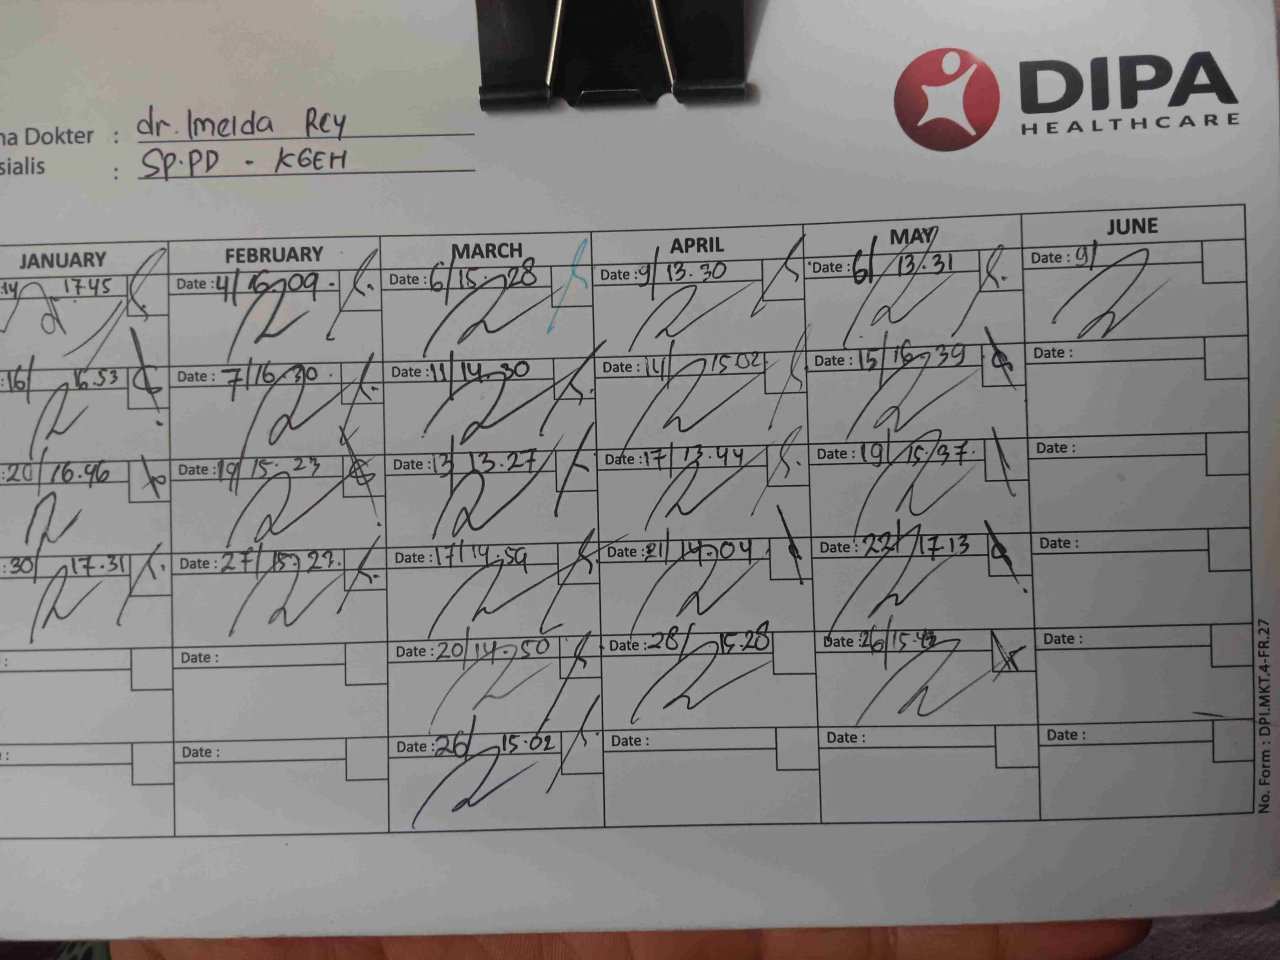 DIPA
HEALTHCARE
na Dokter : dr. Imelda Rey
sialis : SP.PD - KGEH
JANUARY FEBRUARY MARCH APRIL MAY JUNE
14 17.45 Date : 4/ 16.09. Date : 6/ 15.28 Date : 9/ 13.30 Date : 6/ 13.31 Date : 9/
: 16/ 16.53 Date : 7/ 16.30. Date : 11/ 14.30 Date : 14/ 15.02 Date : 15/ 16.39 Date :
: 20/ 16.46 Date : 19/ 15.23 Date : 13/ 13.27 Date : 17/ 13.44 Date : 19/ 15.37. Date :
: 30/ 17.31 Date : 27/ 15.23. Date : 17/ 14.59 Date : 21/ 14.04 Date : 22/ 17.13 Date :
: Date : Date : 20/ 14.50 Date : 28/ 15.28 Date : 26/ Date :
: Date : Date : 26/ 15.02 Date : Date : Date :
No. Form : DPI.MKT.4-FR.27